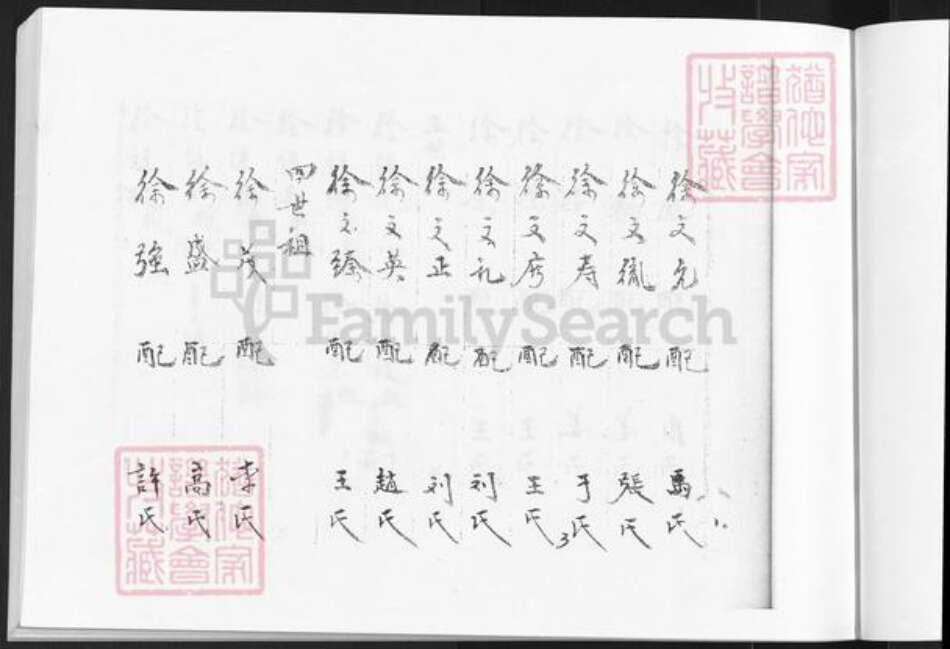 徐文允 配 禹氏
徐文胤 配 張氏
徐文寿 配 于氏
徐文 配 王氏
徐文礼 配 刘氏
徐文正 配 刘氏
徐文英 配 趙氏
徐文臻 配 王氏
四世祖
徐茂 配 李氏
徐盛 配 高氏
徐強 配 許氏
FamilySearch
譜學會
收藏
譜學會
收藏